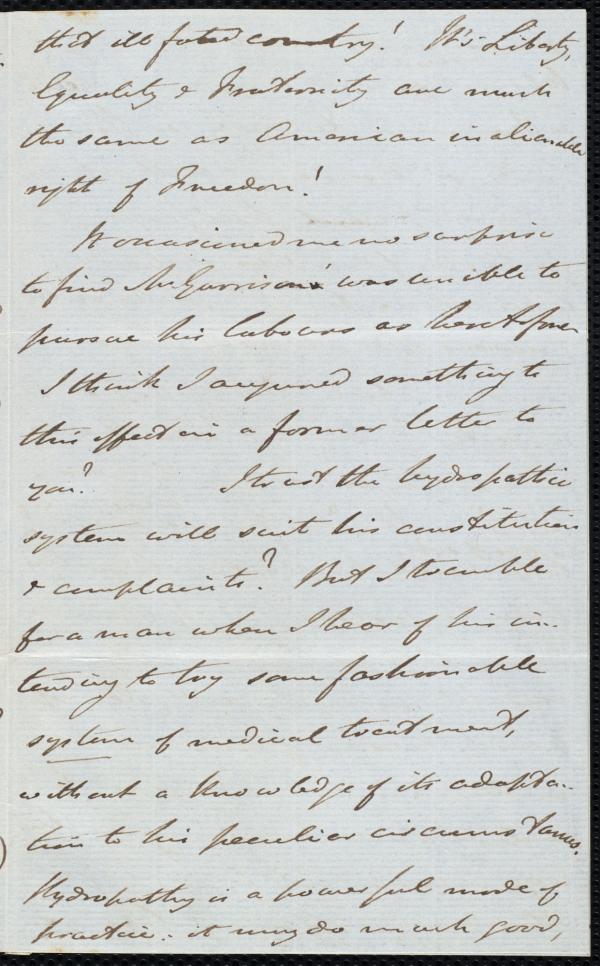 that ill fated country! It's Liberty,
Equality & Fraternity are much
the same as American inalienable
right of Freedom!
It occasioned me no surprise
to find Mr Garrison was unable to
pursue his labours as heretofore
I think I augured something to
this effect in a former letter to
you? I trust the hydropathic
system will suit his constitution
& complaints? But I tremble
for a man when I hear of his in-
tending to try some fashionable
system of medical treatment,
without a knowledge of its adapta-
tion to his peculiar circumstances.
Hydropathy is a powerful mode of
practice: it may do much good,